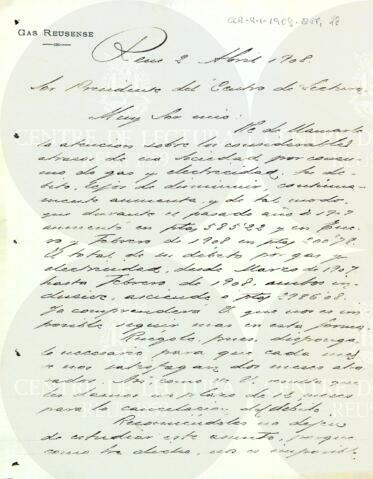 GAS REUSENSE
Reus 2 Abril 1908.
Sor Presidente del Centro de Lectura
Muy Sor mio:
la atencion sobre los considerables
atrasos de su Sociedad por consu-
mo de gas y electricidad. Su de-
bito, lejos de disminuir, continua-
mente aumenta y de tal modo,
que durante el pasado año de 1907
aumentó en ptas 585'22 y en Ene-
ro y Febrero de 1908 en ptas 200'78.
El total de su debito por gas y
electricidad, desde Marzo de 1907
hasta Febrero de 1908 ambos in-
clusive, asciende a ptas 2986'08.
Ya comprenderá V. que nos es im-
posible seguir mas en esta forma.
Ruegole, pues, disponga
lo necesario para que cada mes
se nos satisfagan dos meses
plazo de meses
para la cancelacion del debito.
Recomiendoles no dejen
de estudiar este asunto, porque
como he dicho, nos es imposible
CENTRE DE LECTURA
REUS